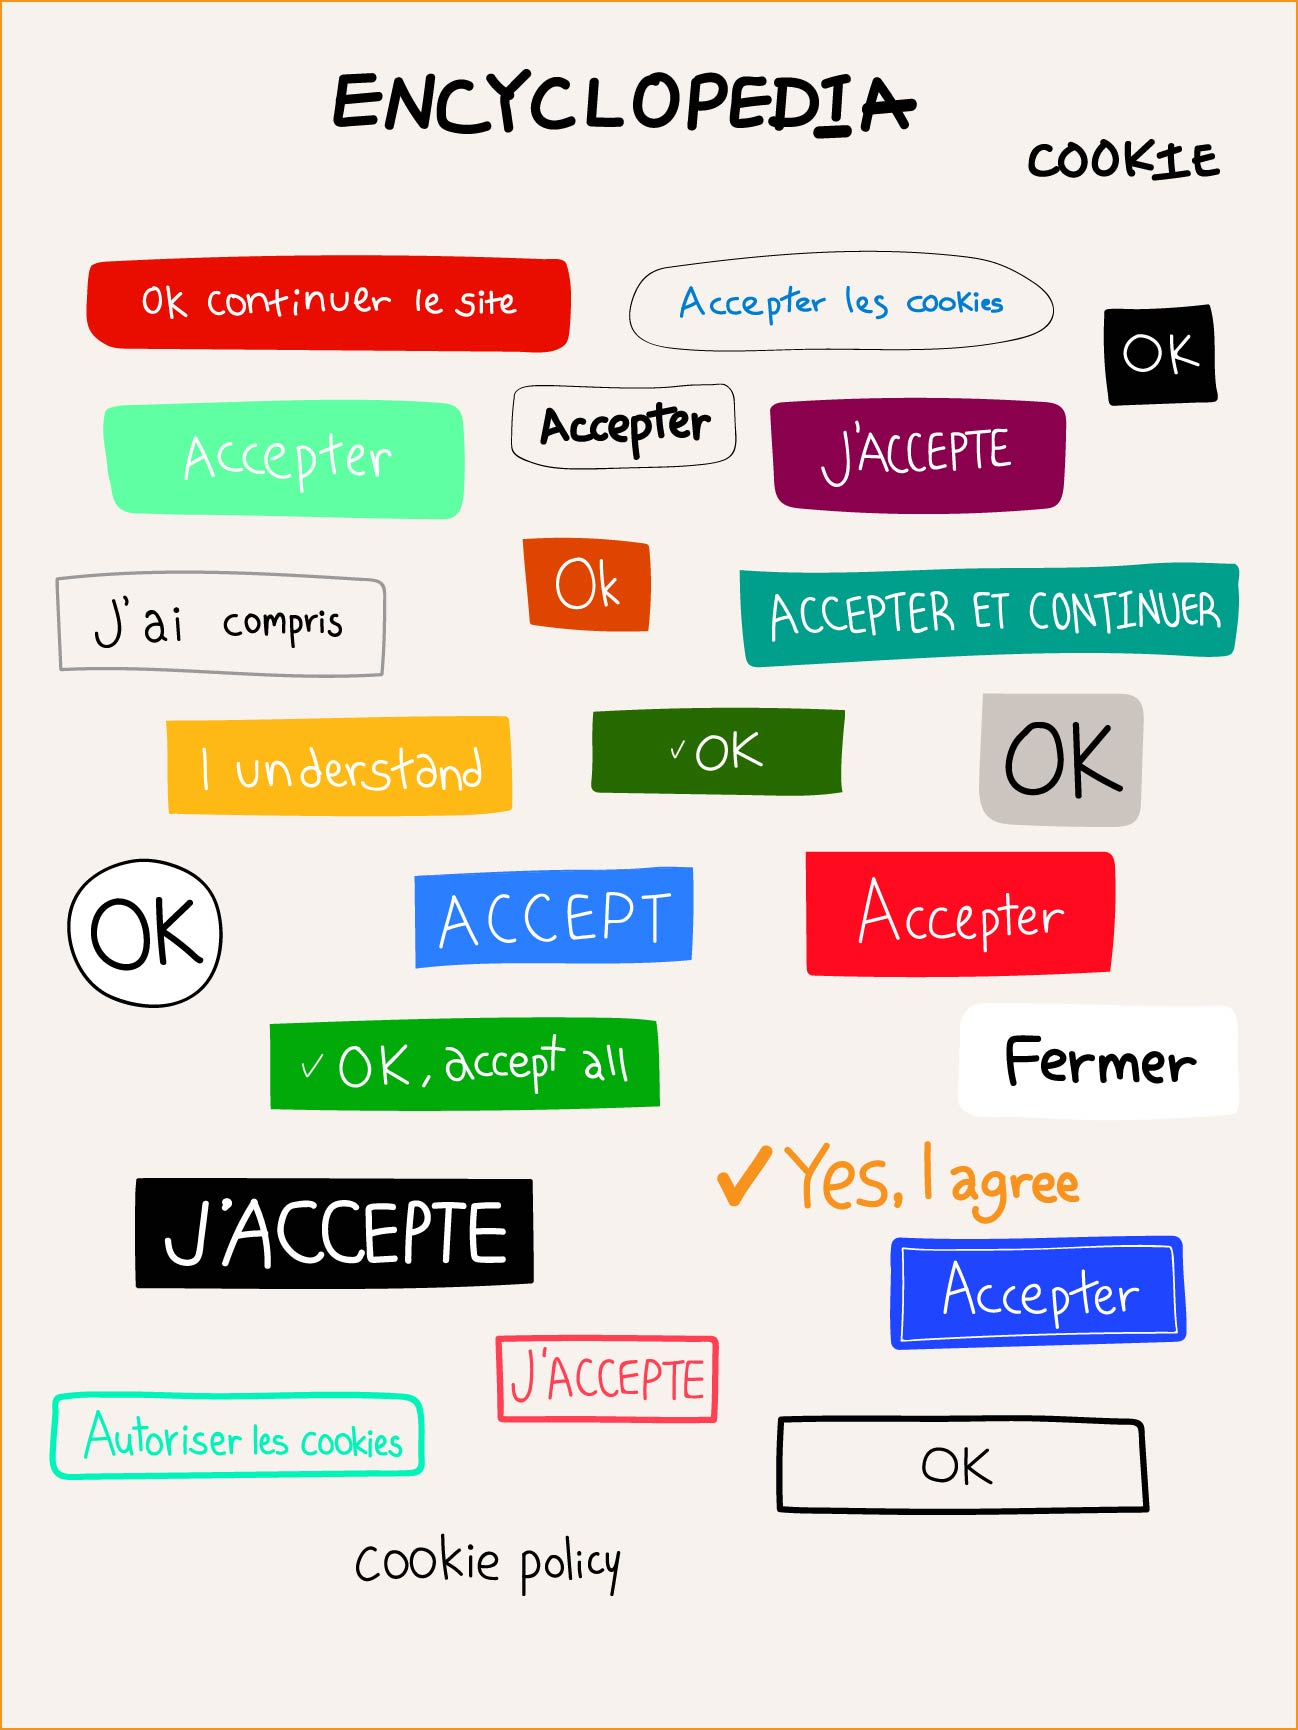 ENCYCLOPEDIA
COOKIE
Ok continuer le site
Accepter les cookies
OK
Accepter
Accepter
J'ACCEPTE
J'ai compris
Ok
ACCEPTER ET CONTINUER
I understand
✓ OK
OK
OK
ACCEPT
Accepter
✓ OK, accept all
Fermer
✓ Yes, I agree
J'ACCEPTE
Accepter
J'ACCEPTE
Autoriser les cookies
OK
cookie policy